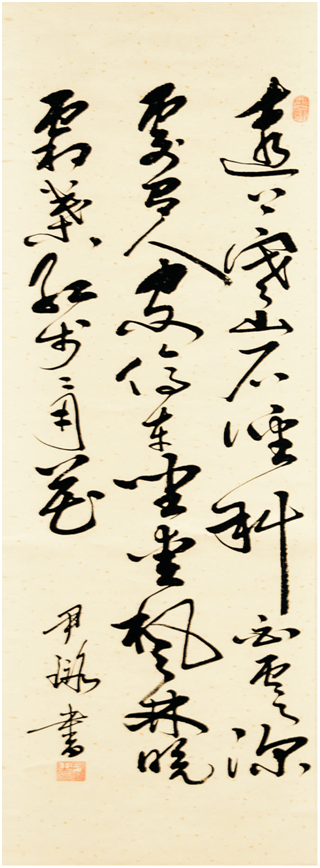 遠上寒山石徑斜白雲深
處有人家停車坐愛楓林晚
霜葉紅於二月花
尹 書